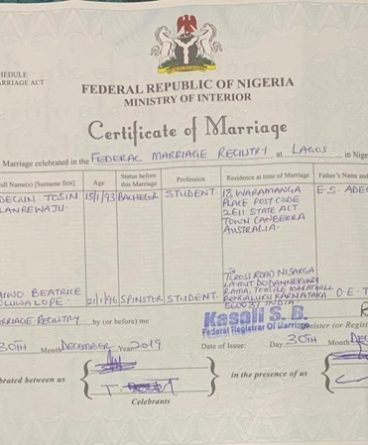 HEDULE
ARRIAGE ACT
FEDERAL REPUBLIC OF NIGERIA
MINISTRY OF INTERIOR
Certificate of Marriage
Marriage celebrated in the FEDERAL MARRIAGE REGISTRY at LAGOS in Niger
ull Name(s) [Surname first] Age Status before this Marriage Profession Residence at time of Marriage Father's Name and
DEGUN TOSIN 15/1/93 BACHELOR STUDENT 18 WARAMANGA E.S. ADE
LANREWAJU PLACE POST CODE
2611 STATE ACT
TOWN CANBERRA
AUSTRALIA
BEATRICE 21/1/96 SPINSTER STUDENT CROSS ROAD NISARGA
OLUWALOPE LAYOUT
BENGALURU KARNATAKA O.E. T
INDIA
ARRIAGE REGISTRY by (or before) me
Kasali S. B.
Federal Registrar Of Marriage
inister (or Regist
30TH Month DECEMBER Year 2019 Date of Issue: Day 30TH Month DEC
brated between us in the presence of us
Celebrants